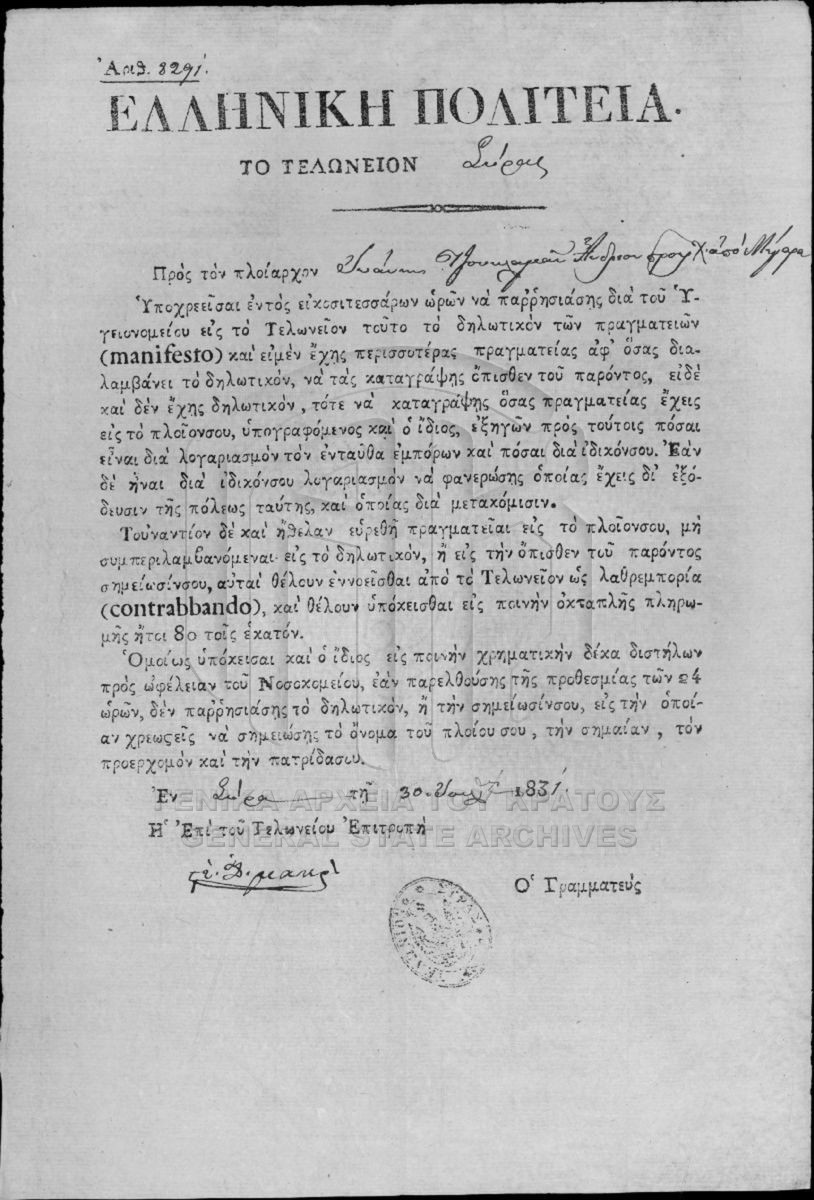 Ἀριθ. 8291.
ΕΛΛΗΝΙΚΗ ΠΟΛΙΤΕΙΑ.
ΤΟ ΤΕΛΩΝΕΙΟΝ Σύρας
Πρὸς τὸν πλοίαρχον Ἰωάννην ἀπὸ Μέγαρα
Ὑποχρεεῖσαι ἐντὸς εἰκοσιτεσσάρων ὡρῶν νὰ παῤῥησιάσῃς διὰ τοῦ Ὑ-
γειονομείου εἰς τὸ Τελωνεῖον τοῦτο τὸ δηλωτικὸν τῶν πραγματειῶν
(manifesto) καὶ εἰμὲν ἔχῃς περισσοτέρας πραγματείας ἀφ' ὅσας δια-
λαμβάνει τὸ δηλωτικὸν, νὰ τὰς καταγράψῃς ὄπισθεν τοῦ παρόντος, εἰδὲ
καὶ δὲν ἔχῃς δηλωτικὸν, τότε νὰ καταγράψῃς ὅσας πραγματείας ἔχεις
εἰς τὸ πλοῖονσου, ὑπογραφόμενος καὶ ὁ ἴδιος, ἐξηγῶν πρὸς τούτοις πόσαι
εἶναι διὰ λογαριασμὸν τὸν ἐνταῦθα ἐμπόρων καὶ πόσαι διὰ ἰδικόνσου. Ἐὰν
δὲ ἦναι διὰ ἰδικόνσου λογαριασμὸν νὰ φανερώσῃς ὁποίας ἔχεις δι' ἐξό-
δευσιν τῆς πόλεως ταύτης, καὶ ὁποίας διὰ μετακόμισιν.
Τοὐναντίον δὲ καὶ ἤθελαν εὑρεθῆ πραγματεῖαι εἰς τὸ πλοῖονσου, μὴ
συμπεριλαμβανόμεναι εἰς τὸ δηλωτικὸν, ἢ εἰς τὴν ὄπισθεν τοῦ παρόντος
σημείωσίνσου, αὐταὶ θέλουν ἐννοεῖσθαι ἀπὸ τὸ Τελωνεῖον ὡς λαθρεμπορία
(contrabbando), καὶ θέλουν ὑπόκεισθαι εἰς ποινὴν ὀκταπλῆς πληρω-
μῆς ἤτοι 80 τοῖς ἑκατόν.
Ὁμοίως ὑπόκεισαι καὶ ὁ ἴδιος εἰς ποινὴν χρηματικὴν δέκα διστήλων
πρὸς ὠφέλειαν τοῦ Νοσοκομείου, ἐὰν παρελθούσης τῆς προθεσμίας τῶν 24
ὡρῶν, δὲν παῤῥησιάσῃς τὸ δηλωτικὸν, ἢ τὴν σημείωσίνσου, εἰς τὴν ὁποί-
αν χρεωστεῖς νὰ σημειώσῃς τὸ ὄνομα τοῦ πλοίου σου, τὴν σημαίαν, τὸν
προερχομὸν καὶ τὴν πατρίδασου.
Ἐν Σύρα τῇ 30 1831
Ἡ Ἐπὶ τοῦ Τελωνείου Ἐπιτροπὴ
Ὁ Γραμματεὺς
ΓΕΝΙΚΑ ΑΡΧΕΙΑ ΤΟΥ ΚΡΑΤΟΥΣ
GENERAL STATE ARCHIVES